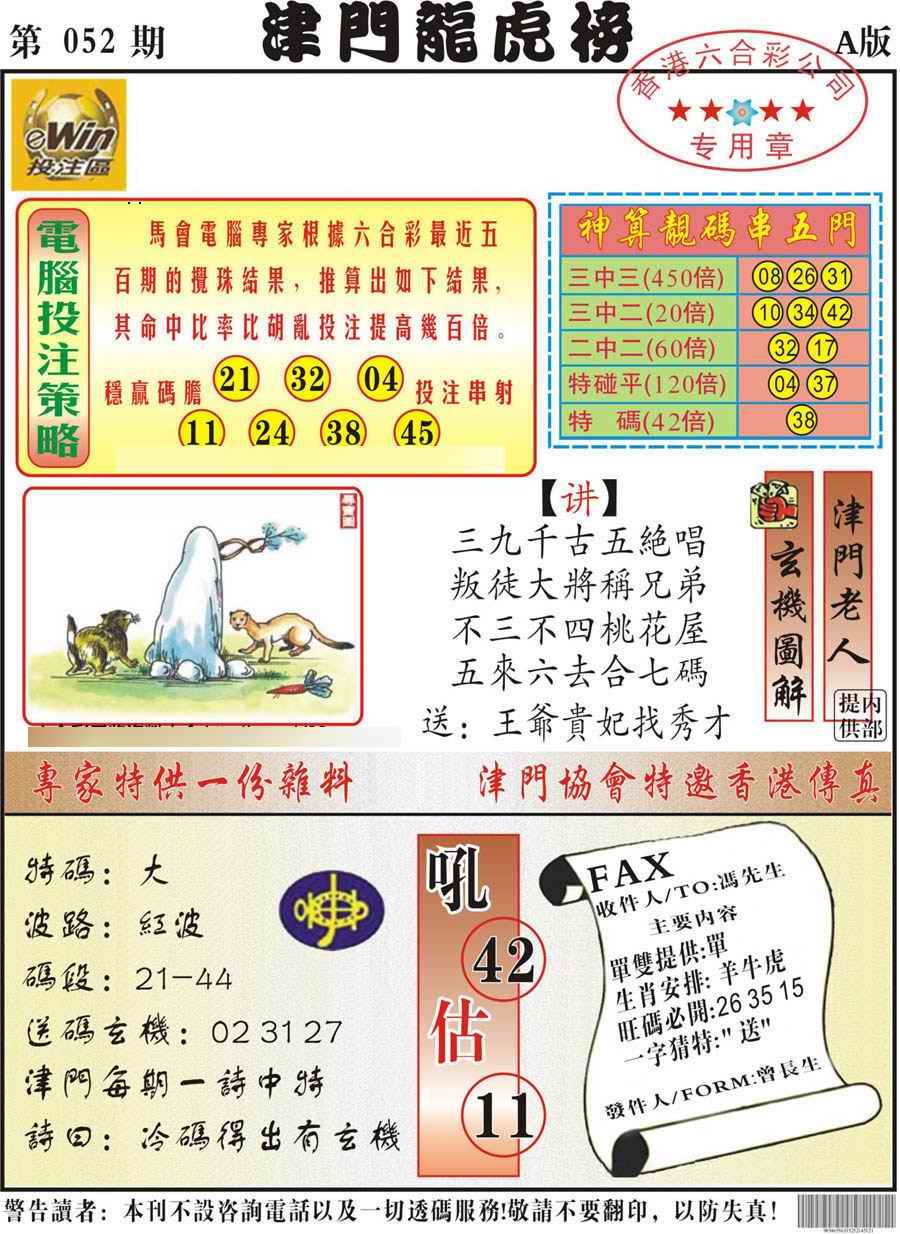 第 052 期
津門龍虎榜
A版
香港六合彩公司
专用章
eWin
投注區
電腦投注策略
馬會電腦專家根據六合彩最近五
百期的攪珠結果，推算出如下結果，
其命中比率比胡亂投注提高幾百倍。
穩贏碼膽 21 32 04 投注串射
11 24 38 45
神算靚碼串五門
三中三(450倍) 08 26 31
三中二(20倍) 10 34 42
二中二(60倍) 32 17
特碰平(120倍) 04 37
特 碼(42倍) 38
【讲】
三九千古五絕唱
叛徒大將稱兄弟
不三不四桃花屋
五來六去合七碼
送：王爺貴妃找秀才
玄機圖解
津門老人
内部提供
專家特供一份雜料
津門協會特邀香港傳真
特碼：大
波路：紅波
碼段：21-44
送碼玄機：02 31 27
津門每期一詩中特
詩曰：冷碼得出有玄機
吼
42
估
11
FAX
收件人/TO:馮先生
主要内容
單雙提供:單
生肖安排:羊牛虎
旺碼必開:26 35 15
一字猜特:"送"
發件人/FORM:曾長生
警告讀者：本刊不設咨詢電話以及一切透碼服務!敬請不要翻印，以防失真!